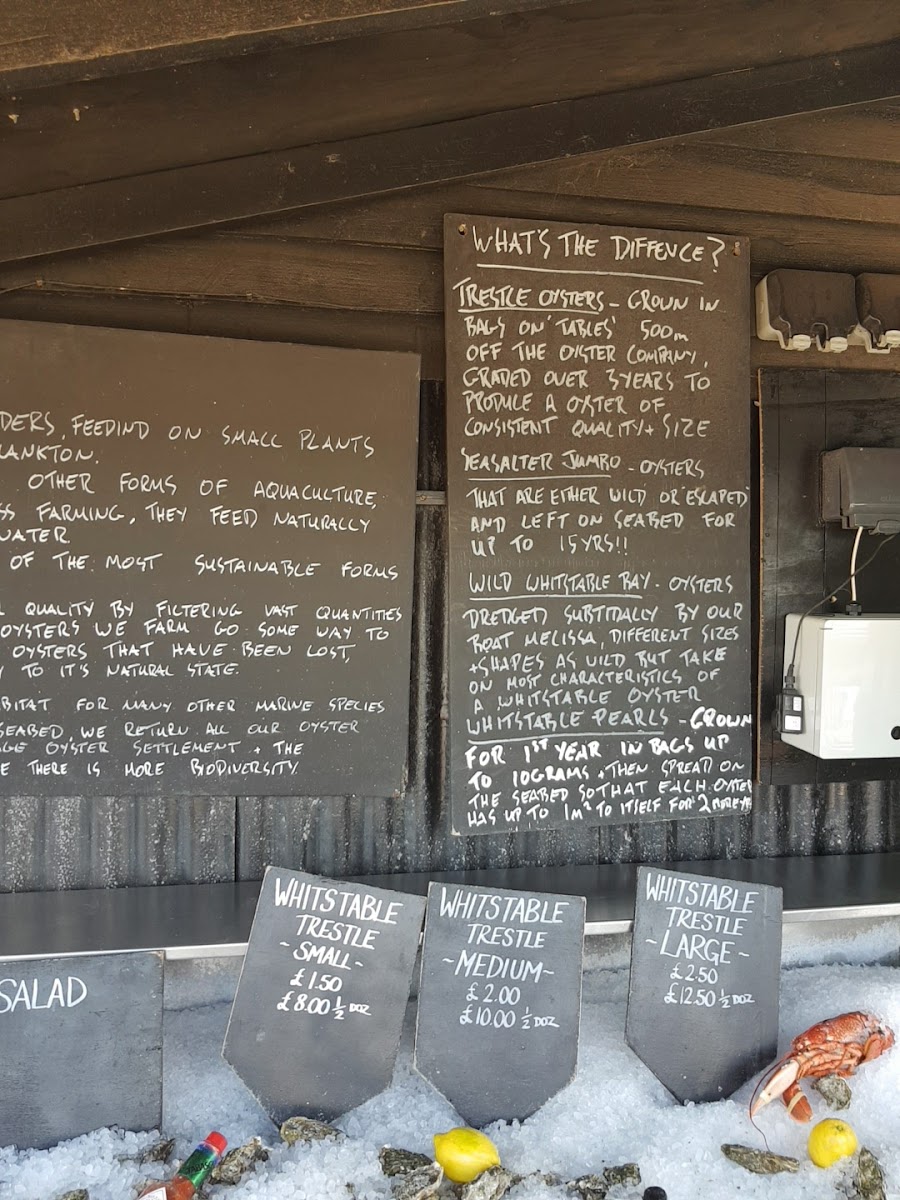 DERS, FEEDIND ON SMALL PLANTS
LANKTON.
OTHER FORMS OF AQUACULTURE,
SS FARMING, THEY FEED NATURALLY
WATER
OF THE MOST SUSTAINABLE FORMS
QUALITY BY FILTERING VAST QUANTITIES
OYSTERS WE FARM GO SOME WAY TO
OYSTERS THAT HAVE BEEN LOST,
TO IT'S NATURAL STATE.
BITAT FOR MANY OTHER MARINE SPECIES
SEABED, WE RETURN ALL OUR OYSTER
GE OYSTER SETTLEMENT + THE
E THERE IS MORE BIODIVERSITY.
WHAT'S THE DIFFENCE?
TRESTLE OYSTERS - GROWN IN
BAGS ON 'TABLES' 500m
OFF THE OYSTER COMPANY,
GRADED OVER 3YEARS TO
PRODUCE A OYSTER OF
CONSISTENT QUALITY + SIZE
SEASALTER JUMBO - OYSTERS
THAT ARE EITHER WILD OR 'ESCAPED'
AND LEFT ON SEABED FOR
UP TO 15YRS!!
WILD WHITSTABLE BAY - OYSTERS
DREDGED SUBTIDALLY BY OUR
BOAT MELISSA, DIFFERENT SIZES
+ SHAPES AS WILD BUT TAKE
ON MOST CHARACTERISTICS OF
A WHITSTABLE OYSTER
WHITSTABLE PEARLS - GROWN
FOR 1ST YEAR IN BAGS UP
TO 10GRAMS + THEN SPREAD ON
THE SEABED SO THAT EACH OYSTER
HAS UP TO 1m² TO ITSELF FOR 2 MORE
WHITSTABLE
TRESTLE
~SMALL~
£1.50
£8.00 ½ DOZ
WHITSTABLE
TRESTLE
~MEDIUM~
£2.00
£10.00 ½ DOZ
WHITSTABLE
TRESTLE
~LARGE~
£2.50
£12.50 ½ DOZ
SALAD